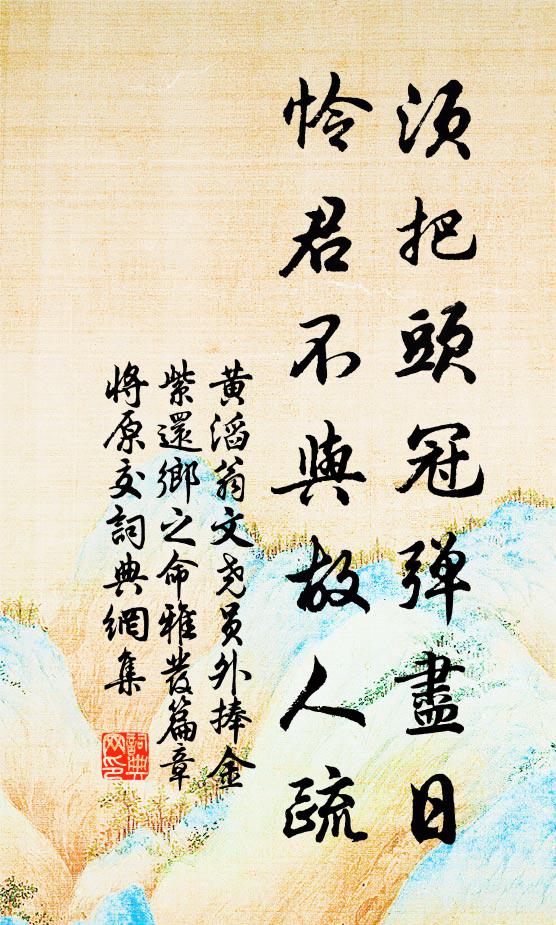 須把頭冠弾盡日
怜君不與故人疏
黃滔翁文尧員外捧金
紫還鄉之命雅發篇章
將原交詞典網集
詞典
网印